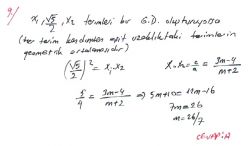 9/ x₁, √5/2, x₂ terimleri bir G.D. oluşturuyorsa
(her terim kendinden eşit uzaklıktaki terimlerin
geometrik ortalamasıdır)
(√5/2)² = x₁.x₂ x₁.x₂ = c/a = 3m-4/m+2
5/4 = 3m-4/m+2 ⇒ 5m+10 = 12m-16
7m = 26
m = 26/7
CEVAP:A